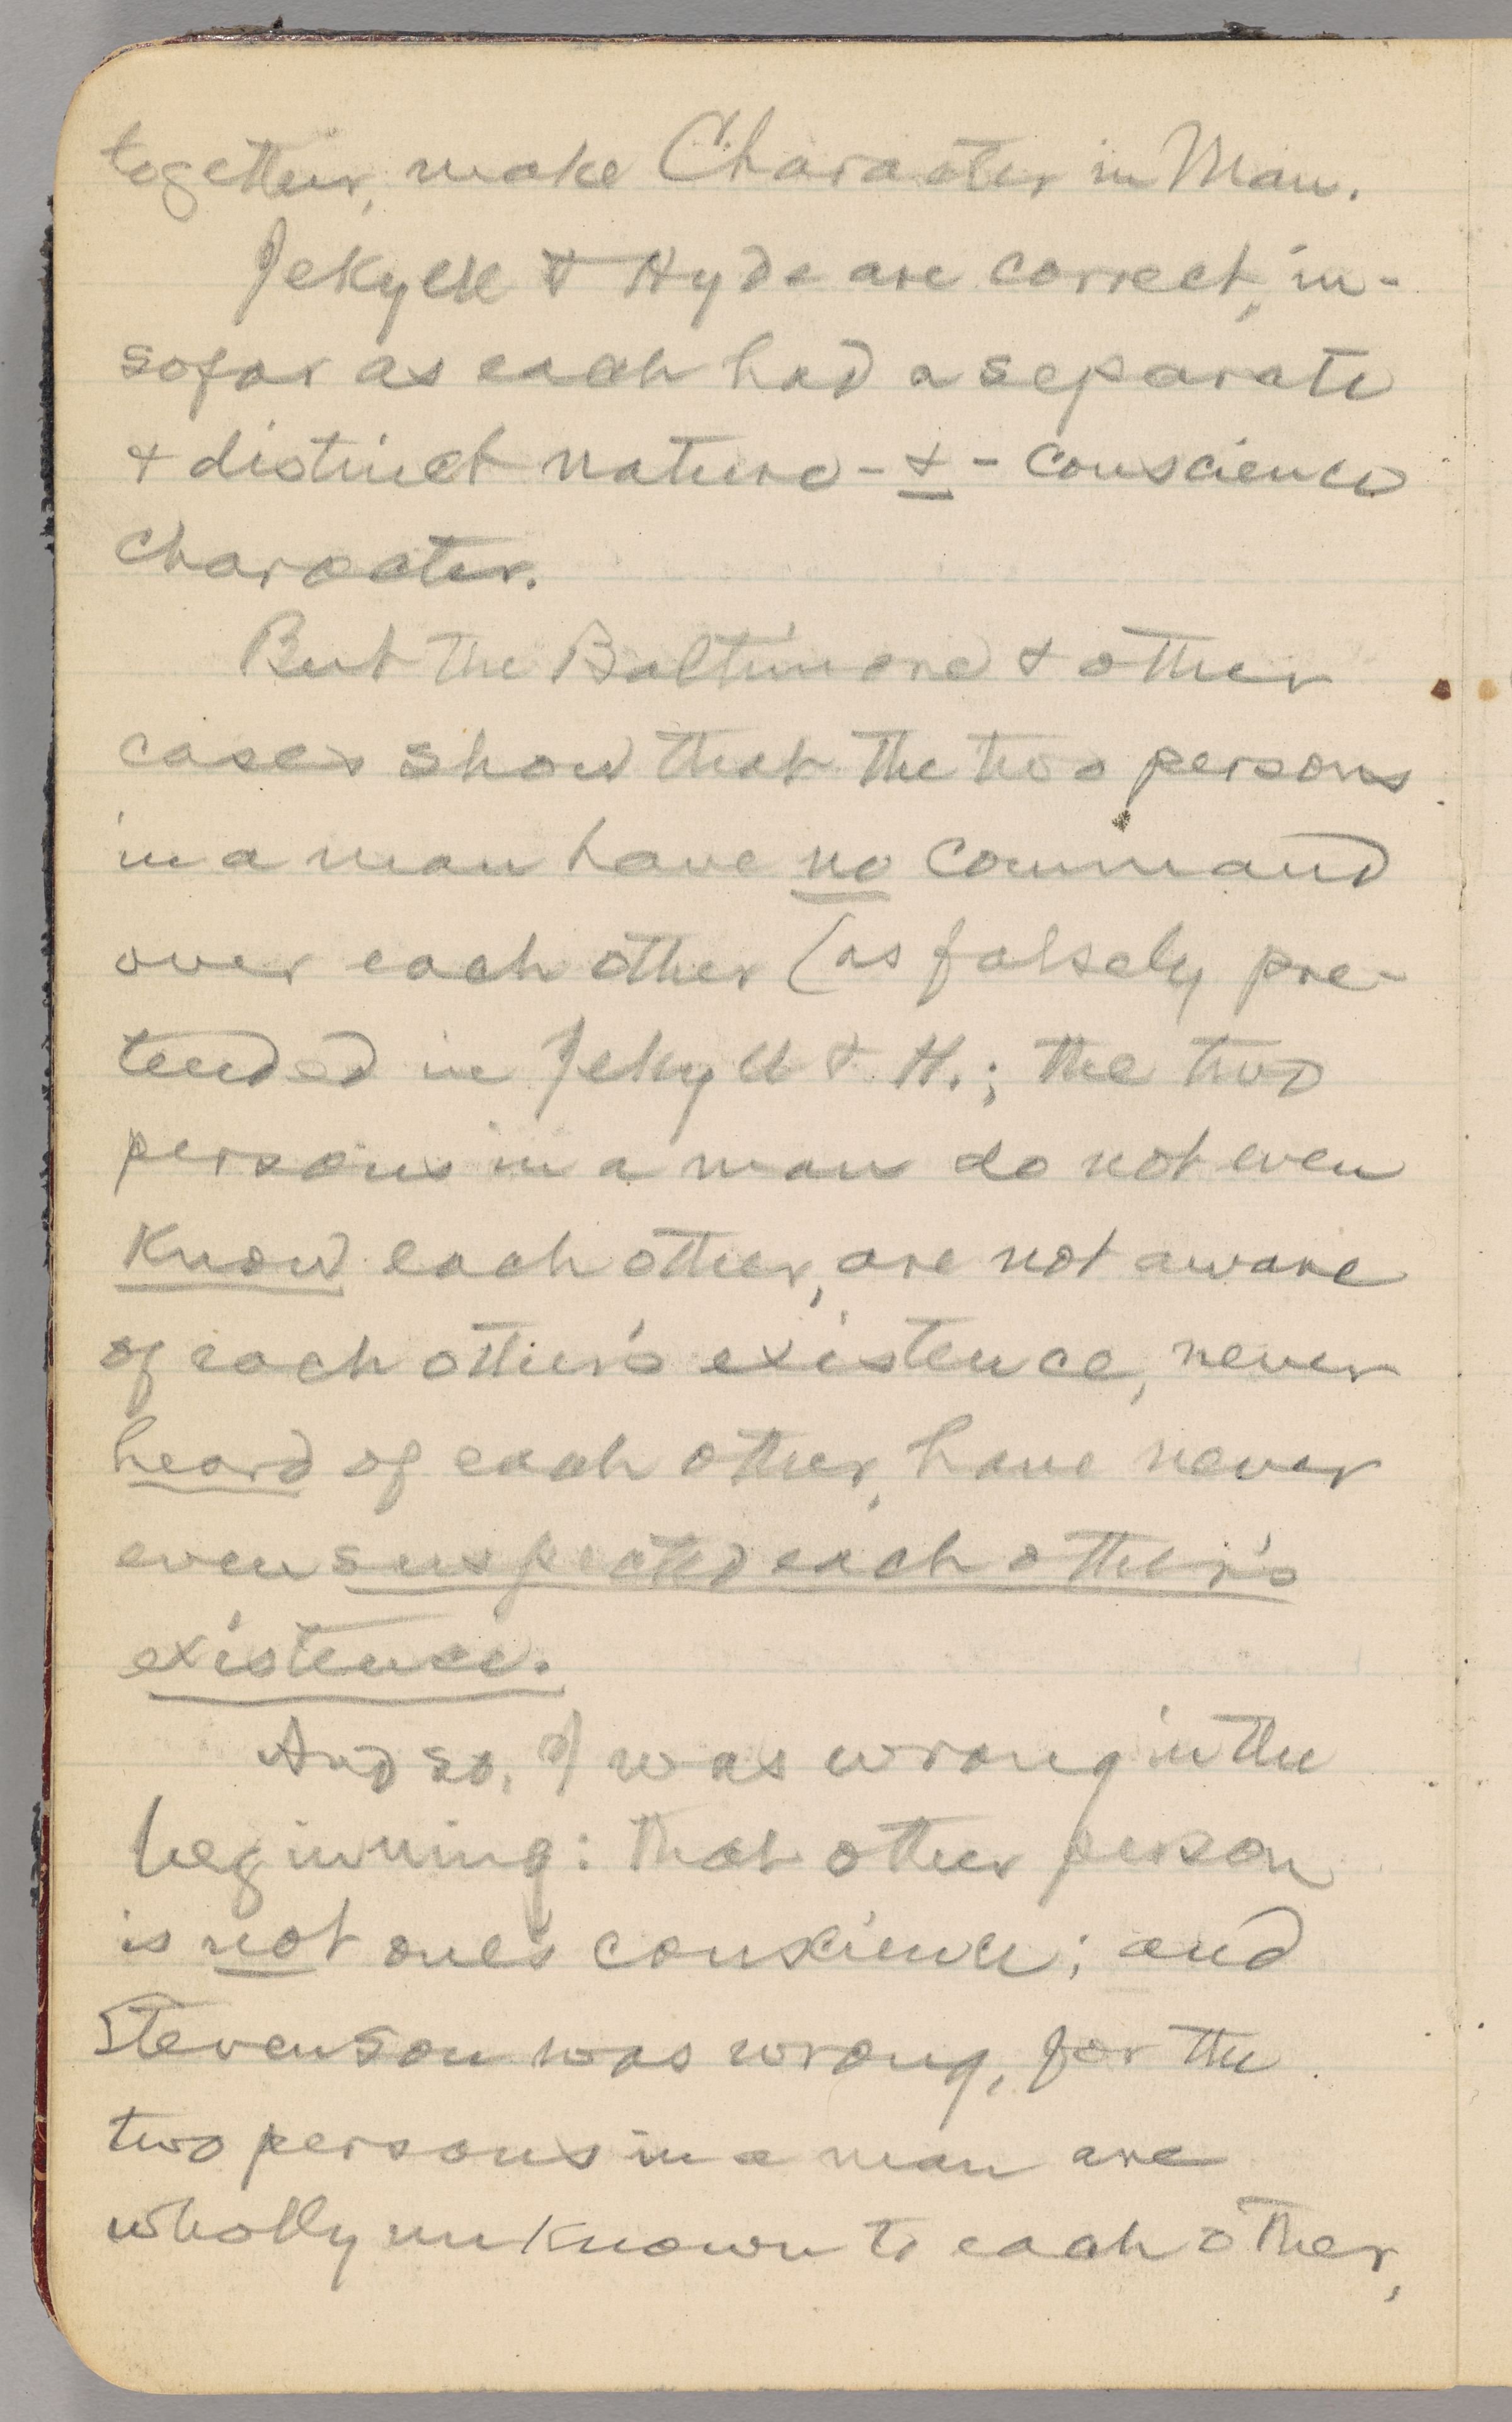 together, make Character in Man.
Jekyll & Hyde are correct, in-
sofar as each had a separate
& distinct nature - & - conscience
character.
But the Baltimore & other
cases show that the two persons
in a man have no command
over each other (as falsely pre-
tended in Jekyll & H.; the two
persons in a man do not even
know each other, are not aware
of each other's existence, never
heard of each other, have never
even suspected each other's
existence.
And so, I was wrong in the
beginning: that other person
is not one's conscience; and
Stevenson was wrong, for the
two persons in a man are
wholly unknown to each other,